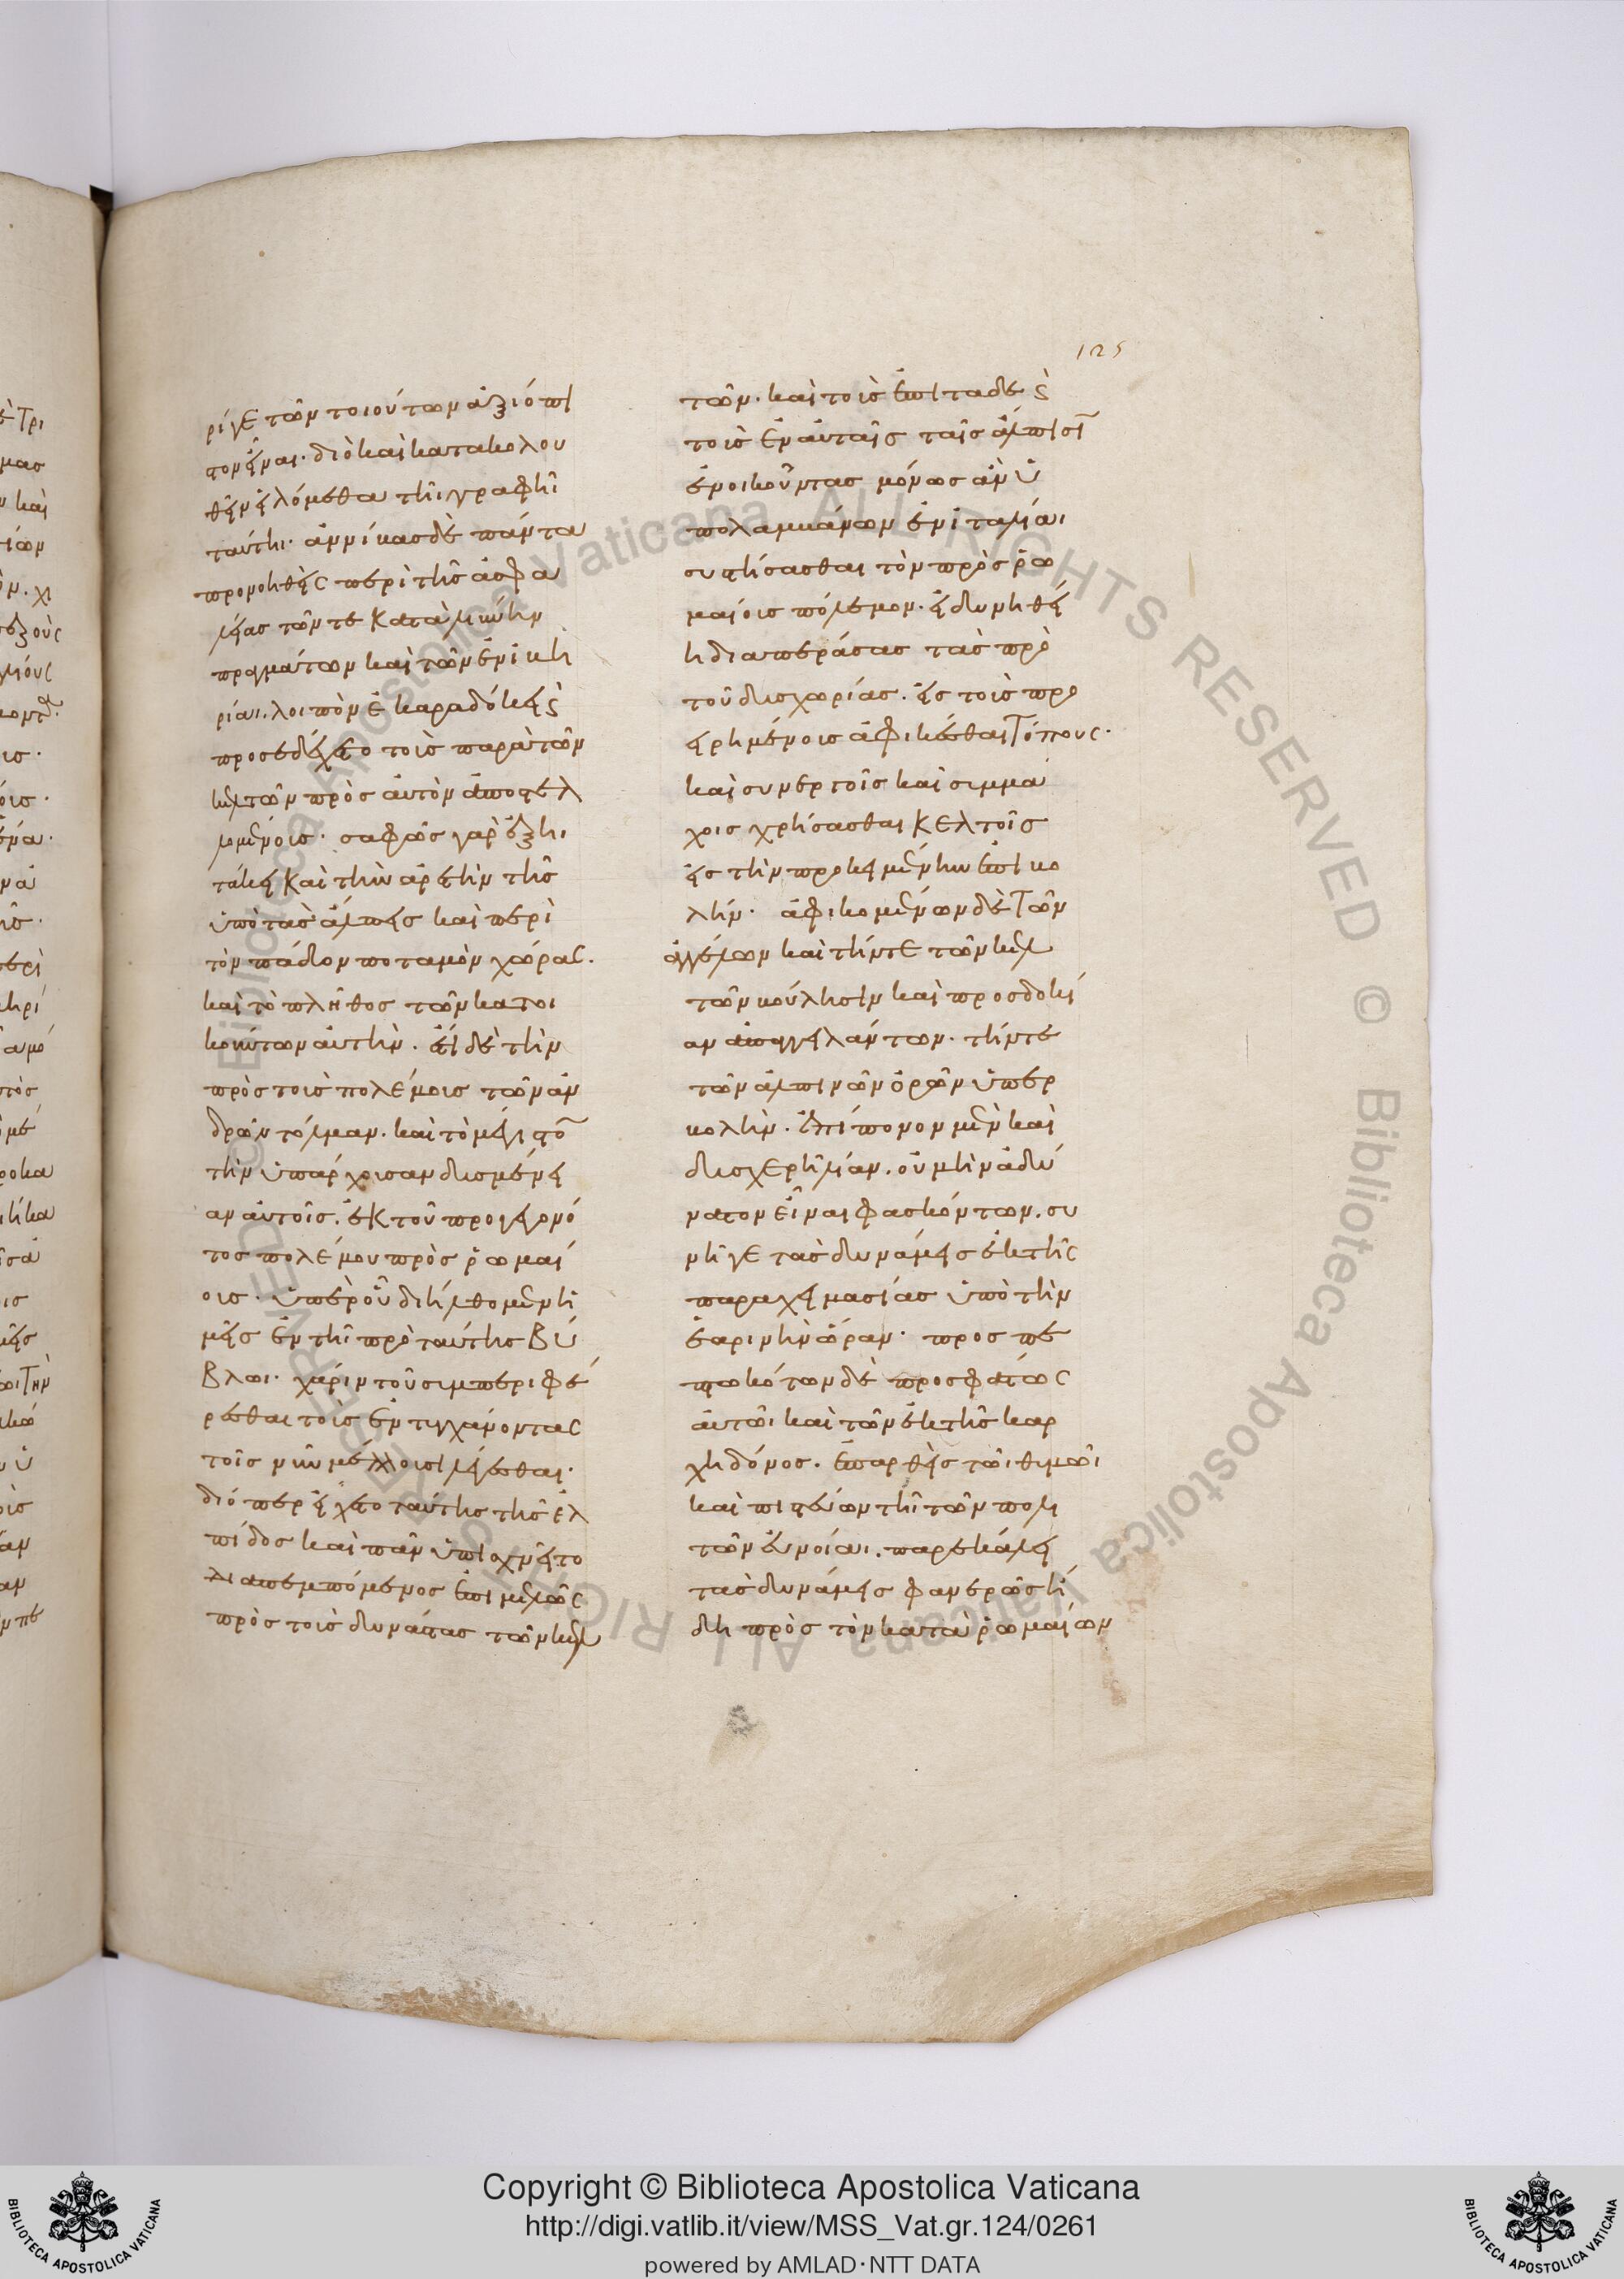 ρί γε τῶν τοιούτων ἀξιόπι
στον εἶναι· διὸ καὶ κατακολου
θεῖν εἱλόμεθα τῆι γραφῆι
ταύτηι· ἀννίβας δὲ πάντα
προνοηθεὶς περὶ τῆς ἀσφα
λείας τῶν τε κατὰ λιβύην
πραγμάτων καὶ τῶν ἐν ἰβη
ρίαι· λοιπὸν ἐκαραδόκει ϛ̀
προσεδέχετο τοὺς παρὰ τῶν
κελτῶν πρὸς αὐτὸν ἀποστελ
λομένους· σαφῶς γὰρ ἐξη
τάκει καὶ τὴν ἀρετὴν τῆς
ὑπὸ τὰς ἄλπεις καὶ περὶ
τὸν πάδον ποταμὸν χώρας·
καὶ τὸ πλῆθος τῶν κατοι
κούντων αὐτὴν· ἔτι δὲ τὴν
πρὸς τοὺς πολέμους τῶν ἀν
δρῶν τόλμαν· καὶ τὸ μέγιστον
τὴν ὑπάρχουσαν δυσμένει
αν αὐτοῖς· ἐκ τοῦ προγεγονό
τος πολέμου πρὸς ῥωμαί
ους· ὑπὲρ οὗ διήλθομεν ἡ
μεῖς ἐν τῆι πρὸ ταύτης βύ
βλωι· χάριν τοῦ συμπεριφέ
ρεσθαι τοὺς ἐντυγχάνοντας
τοῖς νῦν μέλλουσι λέγεσθαι·
διόπερ εἴχετο ταύτης τῆς ἐλ
πίδος καὶ πᾶν ὑπισχνεῖτο
διαπεμπόμενος ἐπιμελῶς
πρὸς τοὺς δυνάστας τῶν κελ
125
τῶν· καὶ τοὺς ἐπὶ τάδε ϛ̀
τοὺς ἐν αὐταῖς ταῖς ἄλπεσιν
ἐνοικοῦντας μόνως ἂν ὑ
πολαμβάνων ἐν ἰταλίαι
συστήσασθαι τὸν πρὸς ῥω
μαίους πόλεμον· εἰ δυνηθεί
η διαπεράσας τὰς πρὸ
τοῦ δυσχωρίας· εἰς τοὺς προ
ειρημένους ἀφικέσθαι τόπους·
καὶ συνεργοῖς καὶ συμμά
χοις χρήσασθαι κελτοῖς
εἰς τὴν προκειμένην ἐπιβο
λήν· ἀφικομένων δὲ τῶν
ἀγγέλων καὶ τήν τε τῶν κελ
τῶν βούλησιν καὶ προσδοκί
αν ἀπαγγειλάντων· τήν τε
τῶν ἀλπινῶν ὀρῶν ὑπερ
βολὴν· ἐπίπονον μὲν καὶ
δυσχερῆ λίαν· οὐ μὴν ἀδύ
νατον εἶναι φασκόντων· συ
νῆγε τὰς δυνάμεις ἐκ τῆς
παραχειμασίας ὑπὸ τὴν
ἐαρινὴν ὥραν· προσπε
πτωκότων δὲ προσφάτως
αὐτῶι καὶ τῶν ἐκ τῆς καρ
χηδόνος· ἐπαρθεὶς τῶι θυμῶι
καὶ πιστεύων τῆι τῶν πολι
τῶν εὐνοίαι· παρεκάλει
τὰς δυνάμεις φανερῶς ἤ
δη πρὸς τὸν κατὰ ῥωμαίων
Copyright © Biblioteca Apostolica Vaticana
http://digi.vatlib.it/view/MSS_Vat.gr.124/0261
powered by AMLAD·NTT DATA